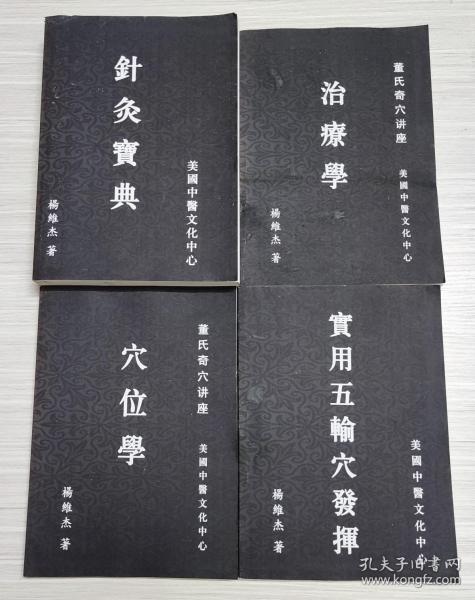 針灸寶典
美國中醫文化中心
楊維杰 著
董氏奇穴讲座
治療學
美國中醫文化中心
楊維杰 著
董氏奇穴讲座
穴位學
美國中醫文化中心
楊維杰 著
實用五輸穴發揮
美國中醫文化中心
楊維杰 著
孔夫子旧书网
www.kongfz.com